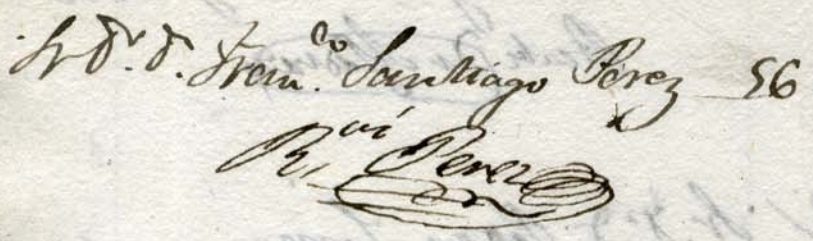 Sr Dr. D. Franco. Santiago Perez 56
Rvi Perez